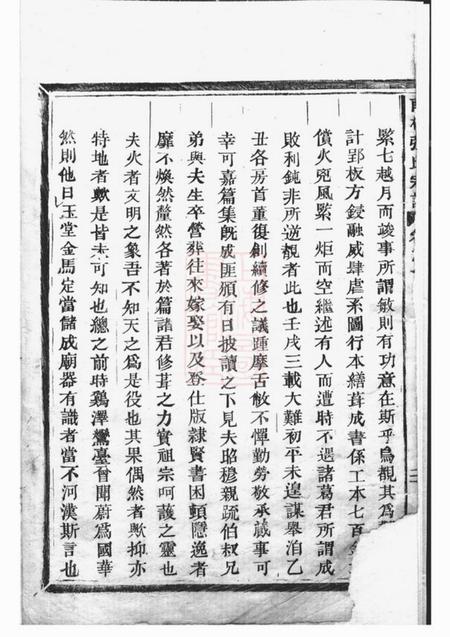 縲七越月而竣事所謂敏則有功意在斯乎烏覩其爲
計郢板方鋟融威肆虐系圖行本繕葺成書係工本七百
償火兜風縲一炬而空繼述有人而遭時不遇諸葛君所謂成
敗利鈍非所逆覩者此也壬戌三載大難初平未遑謀舉洎乙
丑各房首董復創續修之議踵摩舌敝不憚勤勞敬承蕆事可
幸可嘉篇集旣成匪頒有日披讀之下見夫昭穆親疏伯叔兄
弟與夫生卒營葬往來嫁娶以及登仕版隸賢書困頓隱逸者
靡不煥然釐然各著於篇諸君修葺之力實祖宗呵護之靈也
夫火者文明之象吾不知天之爲是役也其果偶然者歟抑亦
特地者歟是皆未可知也總之前時鷄澤鸞臺曾聞蔚爲國華
然則他日玉堂金馬定當儲成廟器有識者當不河漢斯言也